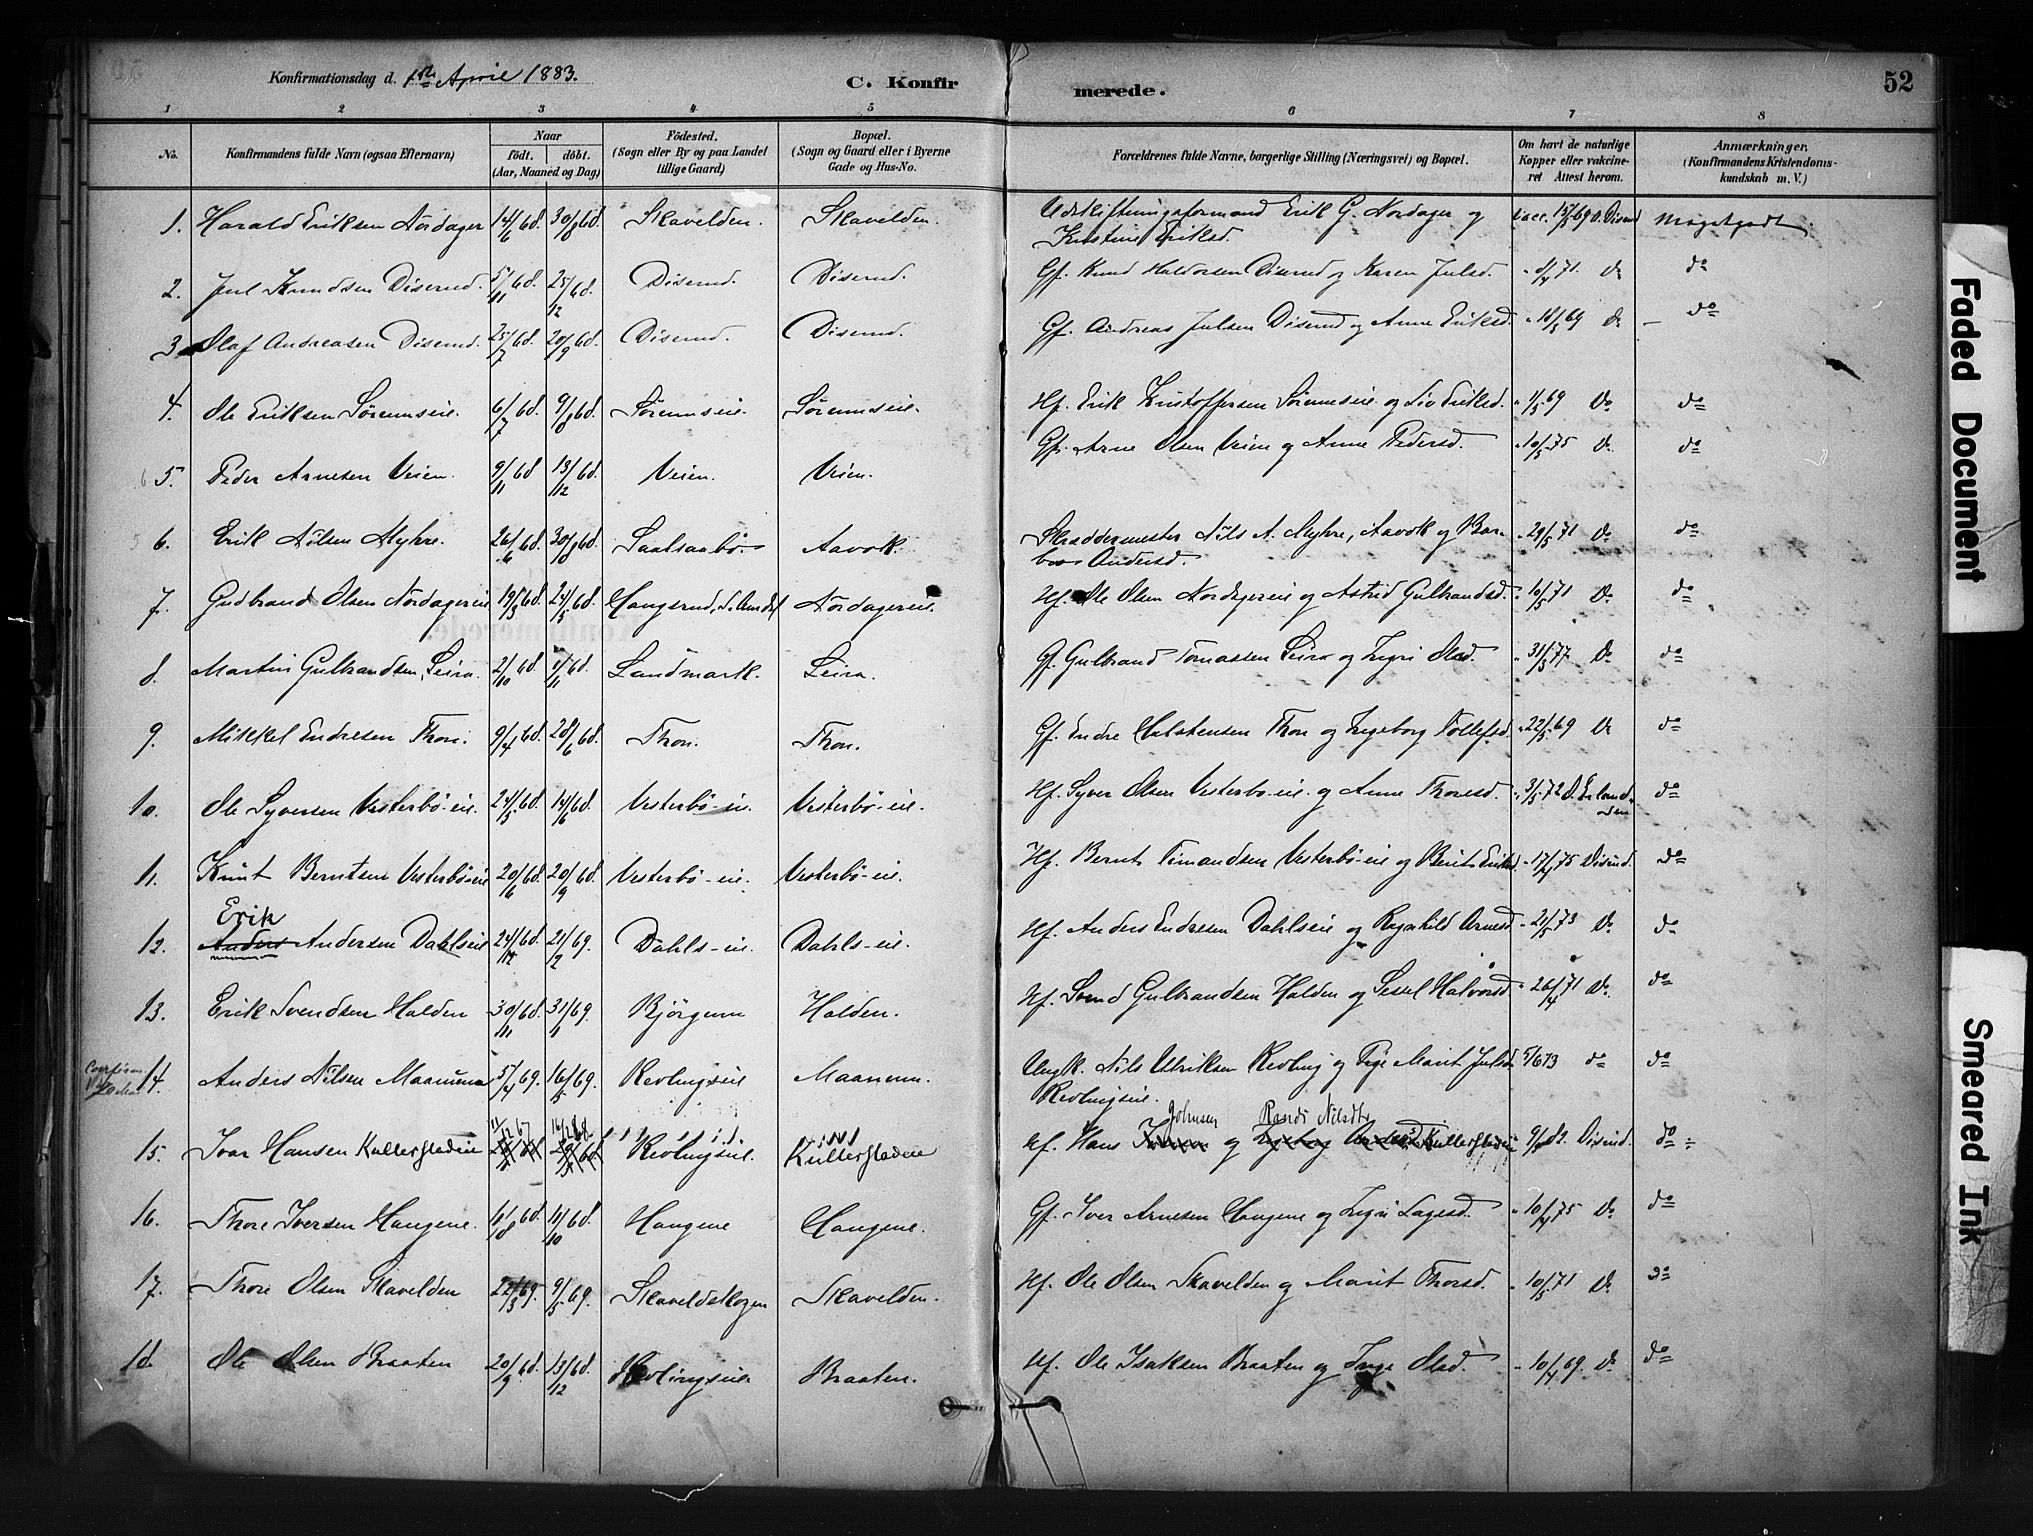 Konfirmationsdag d. 1ste April 1883.
C. Konfirmerede.
52
1 2 3 4 5 6 7 8
No. Konfirmandens fulde Navn (ogsaa Efternavn) Naar födt. döbt. (Aar, Maaned og Dag) Födested. (Sogn eller By og paa Landet tillige Gaard) Bopæl. (Sogn og Gaard eller i Byerne Gade og Hus-No. Forældrenes fulde Navne, borgerlige Stilling (Næringsvei) og Bopæl. Om havt de naturlige Kopper eller vakcineret Attest herom. Anmærkninger. (Konfirmandens Kristendomskundskab m. V.)
1. Harald Eriksen Nordager 14/6 68. 30/8 68. Skavelden. Skavelden. Udskiftningsformand Erik G. Nordager og
Kristine Eriksd. vacc. 15/5 69 D. Diserud Megetgodt
2. Jul Knudsen Diserud. 5/11 68. 25/12 68. Diserud. Diserud. Gf. Knud Haldorsen Diserud og Karen Julsd. 8/4 71. Do do
3. Olaf Andreasen Diserud. 25/7 68. 20/9 68. Diserud. Diserud. Gf. Andreas Julsen Diserud og Anne Eriksd. 18/5 69 Do do
4. Ole Eriksen Sörumseie. 6/7 68. 9/8 68. Sörumseie. Sörumseie. Hf. Erik Kristoffersen Sörumseie og Liv Eriksd. 1/5 69 Do do
5. Peder Arnesen Veien. 9/11 68 13/12 68. Veien. Veien. Gf. Arne Olsen Veien og Anne Pedersd. 10/5 75 Do do
6. Erik Nilsen Myhre. 26/6 68. 30/8 68. Saalsaabö Aavok. Skræddermester Nils A. Myhre, Aavok og Barbro Andersd. 29/5 71 Do do
7. Gudbrand Olsen Nordagereie 19/3 68. 24/5 68. Haugsrud, S. Aurdal Nordagereie. Hf. Ole Olsen Nordagereie og Astrid Gulbrandsd. 10/5 71 Do do
8. Martin Gulbrandsen Leira. 2/10 68. 1/11 68. Landmark. Leira. Gf. Gulbrand Tomassen Leira og Ingri Olsd. 31/5 77 Do do
9. Mikkel Endresen Thon. 9/4 68. 28/6 68. Thon. Thon. Gf. Endre Halstensen Thon og Ingeborg Tollefsd. 22/5 69 Do do
10. Ole Syversen Vesterbö-eie. 24/5 68. 14/6 68. Vesterbö-eie. Vesterbö-eie. Hf. Syver Olsen Vesterbö-eie og Anne Thoresd. 3/5 72 D. Erlandsen do
11. Knut Berntsen Vesterbö-eie 20/6 68. 20/9 68. Vesterbö-eie. Vesterbö-eie. Hf. Bernt Timandsen Vesterbö-eie og Berit Eriksd. 17/4 75 Diserud. do
Erik
12. Anders Andersen Dahlseie 24/12 68. 21/2 69. Dahls-eie. Dahls-eie. Hf. Anders Endresen Dahlseie og Ragnhild Arnesd. 21/5 73 Do do
13. Erik Svendsen Halden 30/11 68. 31/1 69. Björgum Halden. Hf. Svend Gulbrandsen Halden og Sissel Halvorsd. 26/4 71 Do do
14. Anders Nilsen Maanum 5/4 69. 16/5 69. Revlingseie Maanum. Ungk. Nils Ulriksen Revling og Pige Marit Julsd.
Revlingseie. 5/6 73 do do
Johnsen Randi Nilsdtr.
15. Ivar Hansen Kullersladeie 11/12 67 16/2 68 Revlingseie. Kullersladeie Hf. Hans og Kullersladeie 9/5 82. Diserud. do
16. Thore Iversen Haugene. 10/8 68. 11/10 68. Haugene Haugene. Gf. Iver Arnesen Haugene og Ingri Lagesd. 10/4 75 Do do
17. Thore Olsen Skavelden 22/3 69. 9/5 69. Skaveldskogen Skavelden. Hf. Ole Olsen Skavelden og Marit Thorsd. 10/5 71 Do do
18. Ole Olsen Braaten 20/9 68. 13/12 68. Revlingseie Braaten. Hf. Ole Isaksen Braaten og Inge Olsd. 10/4 69. Do do
Faded Document
Smeared Ink